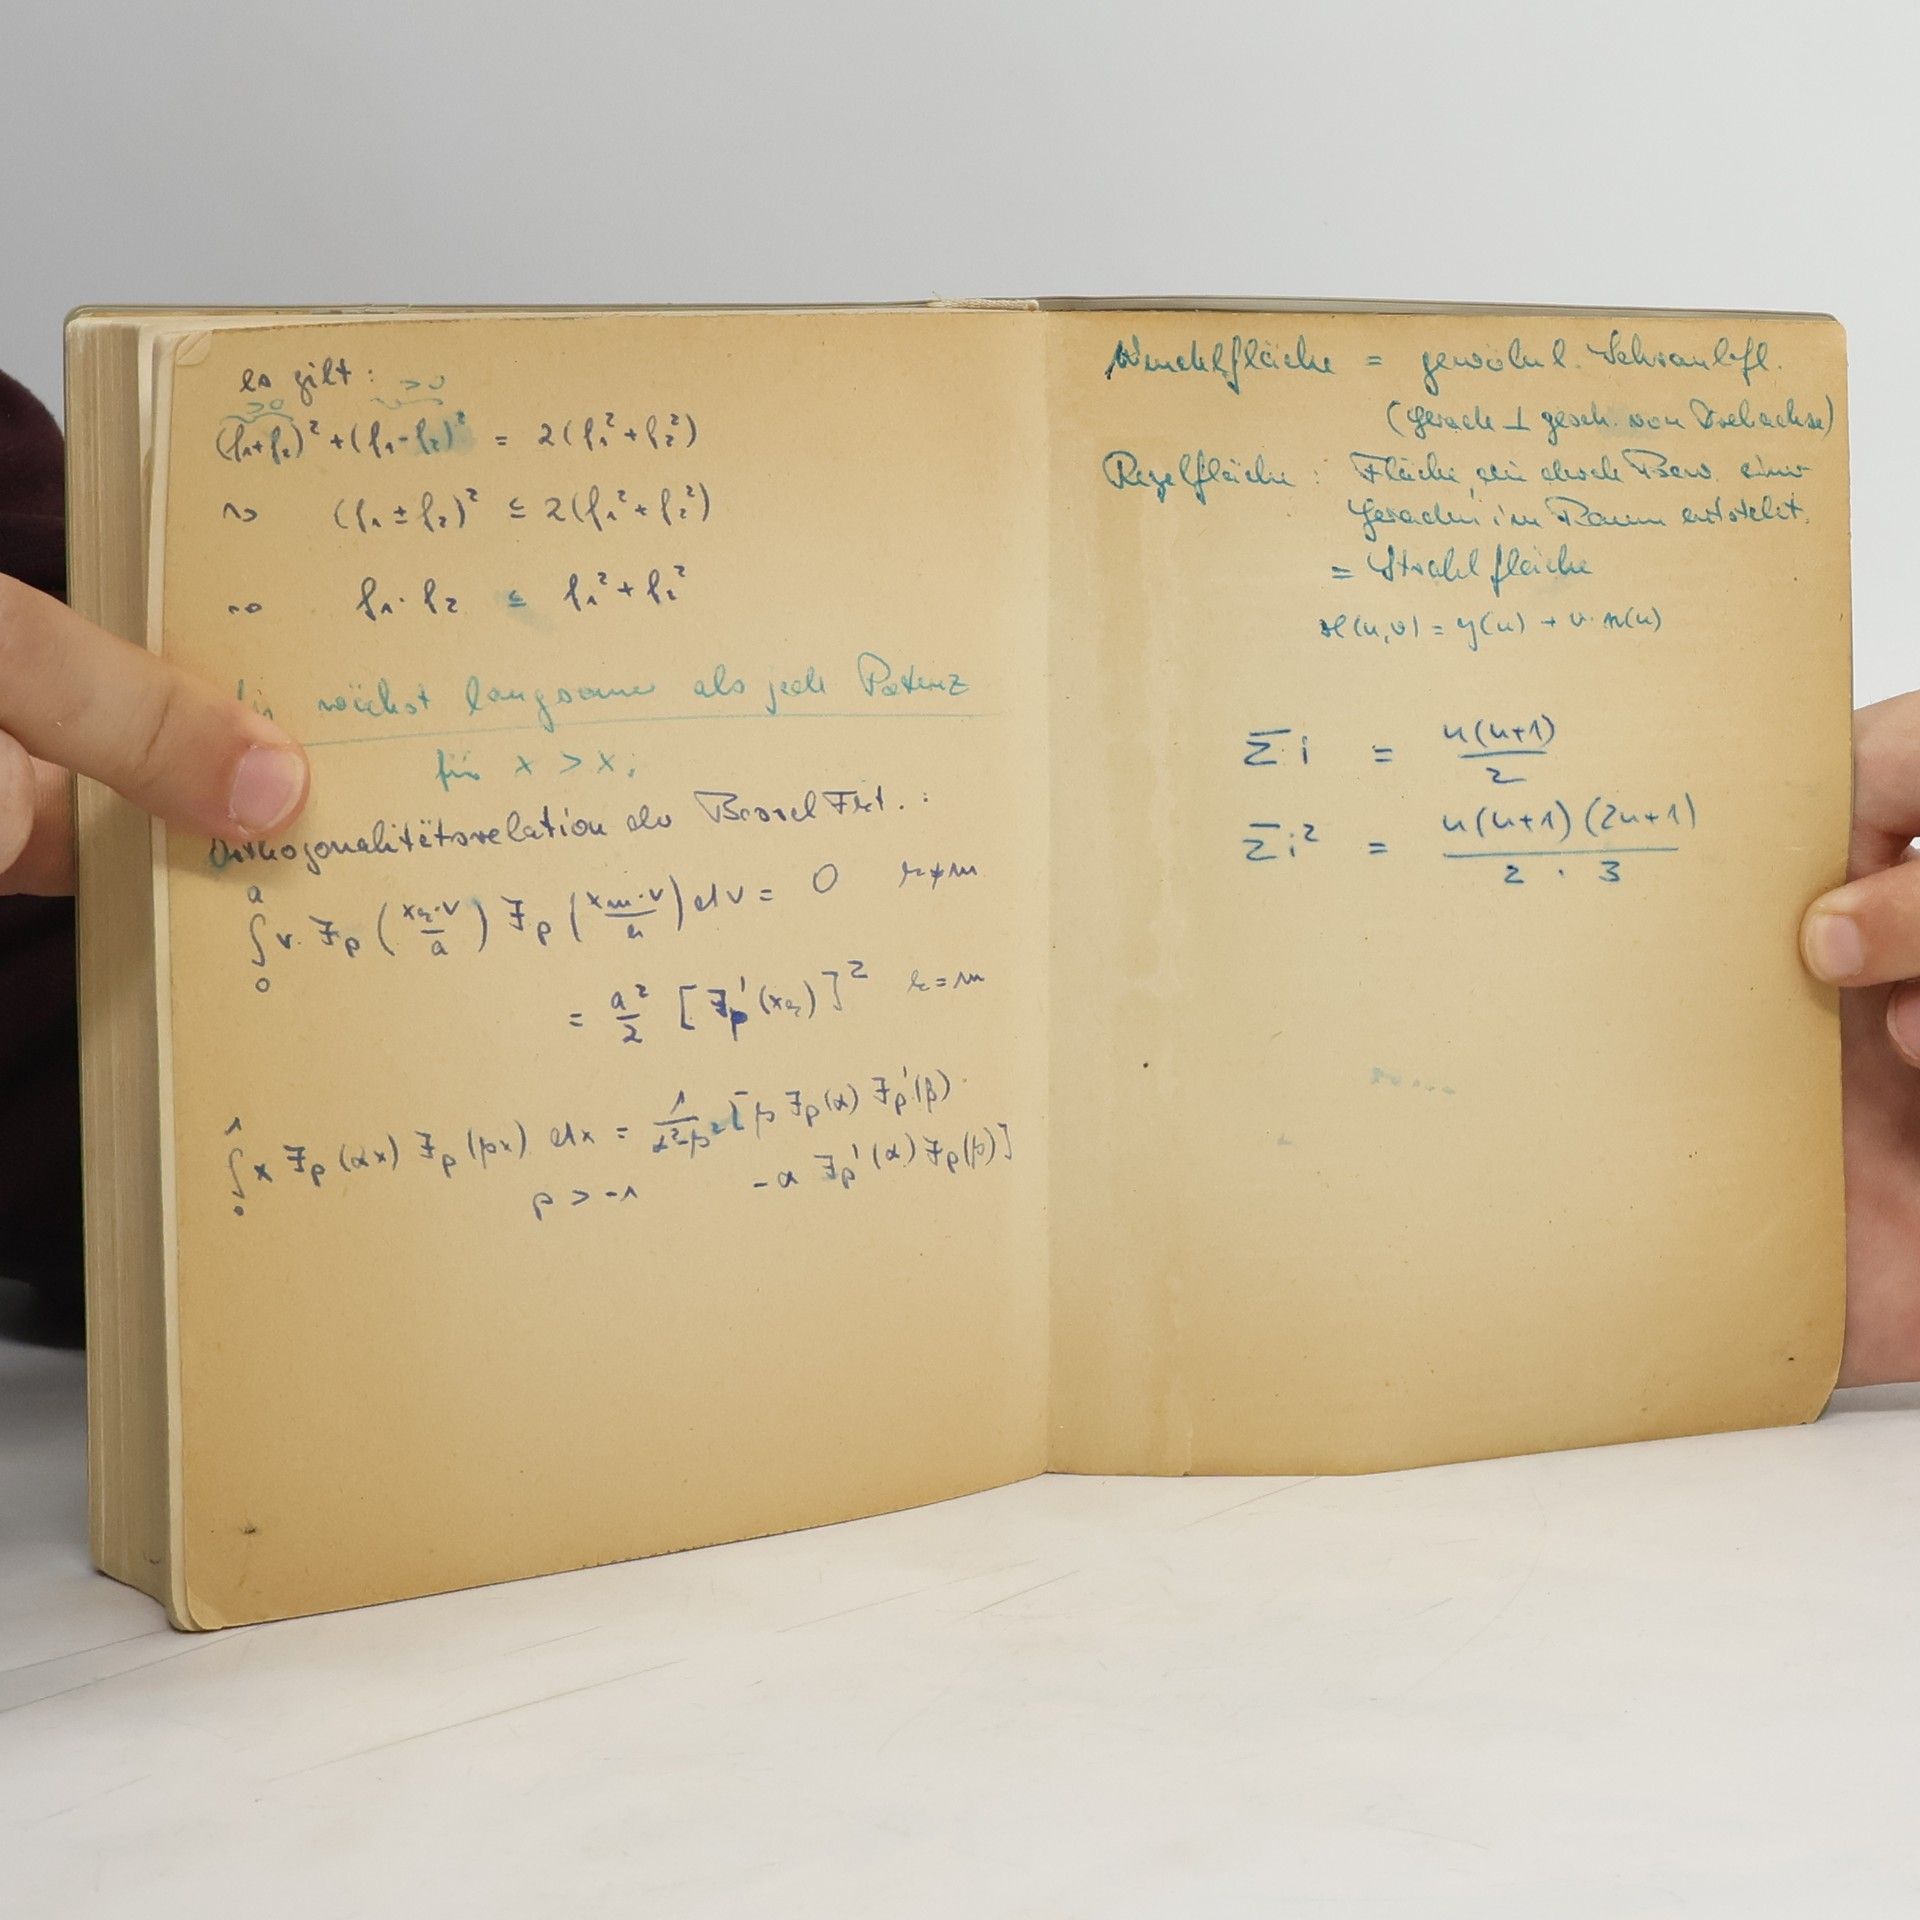 es gilt:
>0 >0
(f₁+f₂)² + (f₁-f₂)² = 2(f₁² + f₂²)
~> (f₁ ± f₂)² ≤ 2(f₁² + f₂²)
~> f₁ · f₂ ≤ f₁² + f₂²
ln wächst langsamer als jede Potenz
für x > x₁
Orthogonalitätsrelation der Bessel Fkt. :
∫₀ᵃ r · J_p (x_k·r / a) J_p (x_m·r / a) dr = 0 k≠m
= a²/2 [J_p'(x_k)]² k=m
∫₀¹ x J_p(αx) J_p(βx) dx = 1/(α²-β²) [β J_p(α) J_p'(β)
p > -1 - α J_p'(α) J_p(β)]
Wendelfläche = gewöhnl. Schraubfl.
(Gerade ⊥ gesch. von Drehachse)
Regelfläche : Fläche, die durch Bew. einer
Geraden im Raum entsteht.
= Strahlfläche
x(u,v) = y(u) + v·n(u)
Σ i = n(n+1) / 2
Σ i² = n(n+1)(2n+1) / 2 · 3